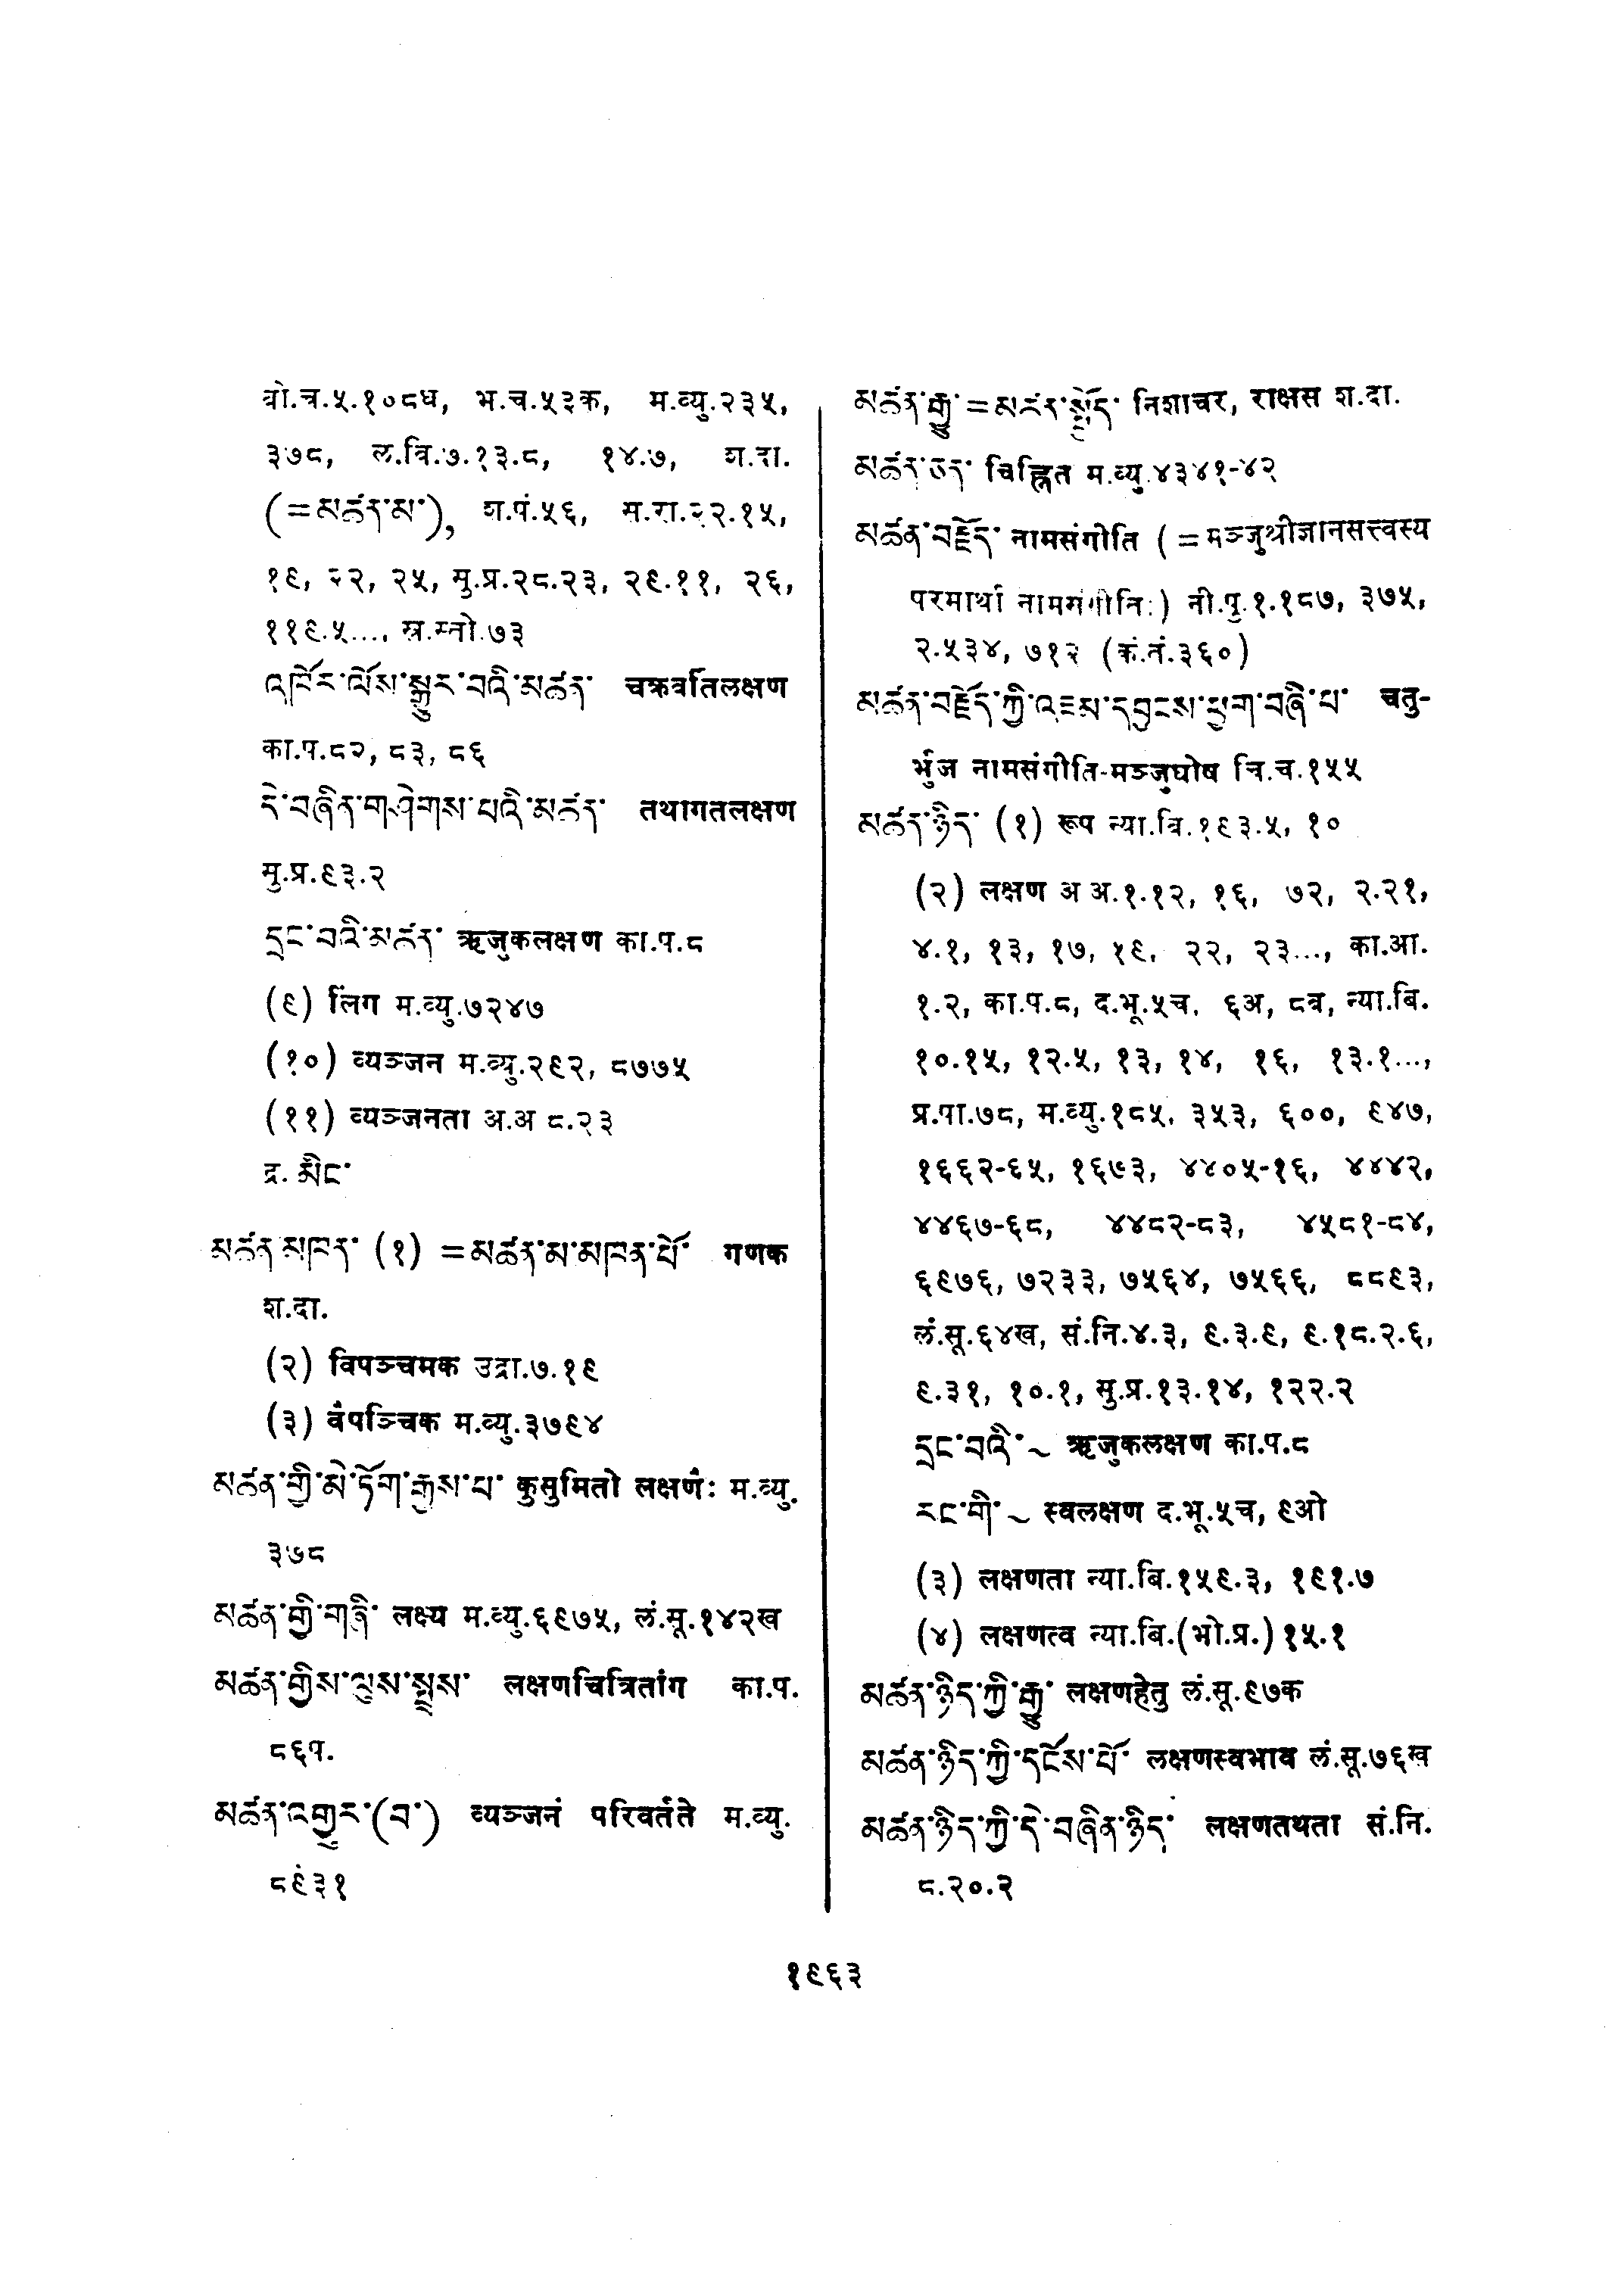 बो.च.५.१०८ध, भ.च.५३क, म.व्यु.२३५,
३७८, ल.वि.७.१३.८, १४.७, श.दा.
(=མཚན་མ་), श.पं.५६, म.रा.२२.१५,
१९, २२, २५, मु.प्र.२८.२३, २९.११, २६,
११९.५..., स्र.स्तो.७३
འཁོར་ལོས་སྒྱུར་བའི་མཚན་ चक्रवर्तिलक्षण
का.प.८२, ८३, ८६
དེ་བཞིན་གཤེགས་པའི་མཚན་ तथागतलक्षण
मु.प्र.९३.२
དྲང་བའི་མཚན་ ऋजुकलक्षण का.प.८
(९) लिंग म.व्यु.७२४७
(१०) व्यञ्जन म.व्यु.२९२, ८७७५
(११) व्यञ्जनता अ.अ ८.२३
द्र. མིང་
མཚན་མཁན་ (१) =མཚན་མ་མཁན་པོ་ गणक
श.दा.
(२) विपञ्चमक उद्रा.७.१९
(३) वैपञ्चिक म.व्यु.३७९४
མཚན་གྱི་མེ་ཏོག་རྒྱས་པ་ कुसुमितो लक्षणैः म.व्यु.
३७८
མཚན་གྱི་གཞི་ लक्ष्य म.व्यु.६९७५, लं.सू.१४२ख
མཚན་གྱིས་ལུས་སྤྲས་ लक्षणचित्रितांग का.प.
८६प.
མཚན་འགྱུར་(བ་) व्यञ्जनं परिवर्तते म.व्यु.
८९३१
མཚན་རྒྱུ་=མཚན་སྤྱོད་ निशाचर, राक्षस श.दा.
མཚན་ཅན་ चिह्नित म.व्यु.४३४१-४२
མཚན་བརྗོད་ नामसंगीति (=मञ्जुश्रीज्ञानसत्त्वस्य
परमार्था नामसंगीतिः) नी.पृ.१.१८७, ३७५,
२.५३४, ७१२ (कं.तं.३६०)
མཚན་བརྗོད་ཀྱི་འཇམ་དབྱངས་ཕྱག་བཞི་པ་ चतु-
र्भुज नामसंगीति-मञ्जुघोष त्रि.च.१५५
མཚན་ཉིད་ (१) रूप न्या.बि.१९३.५, १०
(२) लक्षण अ अ.१.१२, १६, ७२, २.२१,
४.१, १३, १७, १९, २२, २३..., का.आ.
१.२, का.प.८, द.भू.५च, ६अ, ८त्र, न्या.बि.
१०.१५, १२.५, १३, १४, १६, १३.१...,
प्र.पा.७८, म.व्यु.१८५, ३५३, ६००, ९४७,
१६६२-६५, १६७३, ४४०५-१६, ४४४२,
४४६७-६८, ४४८२-८३, ४५८१-८४,
६९७६, ७२३३, ७५६४, ७५६६, ८८९३,
लं.सू.६४ख, सं.नि.४.३, ९.३.९, ९.१८.२.६,
९.३१, १०.१, मु.प्र.१३.१४, १२२.२
དྲང་བའི་~ ऋजुकलक्षण का.प.८
རང་གི་~ स्वलक्षण द.भू.५च, ९ओ
(३) लक्षणता न्या.बि.१५९.३, १९१.७
(४) लक्षणत्व न्या.बि.(भो.प्र.) १५.१
མཚན་ཉིད་ཀྱི་རྒྱུ་ लक्षणहेतु लं.सू.९७क
མཚན་ཉིད་ཀྱི་དངོས་པོ་ लक्षणस्वभाव लं.सू.७६ख
མཚན་ཉིད་ཀྱི་དེ་བཞིན་ཉིད་ लक्षणतथता सं.नि.
८.२०.२
१९६३